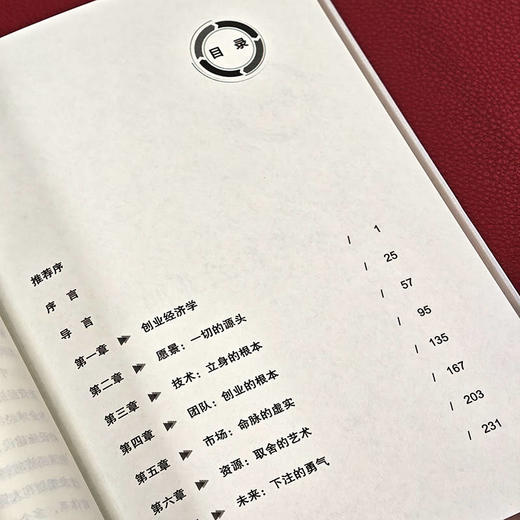 目录
推荐序
序言
导言 / 1
第一章 创业经济学 / 25
第二章 愿景：一切的源头 / 57
第三章 技术：立身的根本 / 95
第四章 团队：创业的根本 / 135
第五章 市场：命脉的虚实 / 167
第六章 资源：取舍的艺术 / 203
未来：下注的勇气 / 231